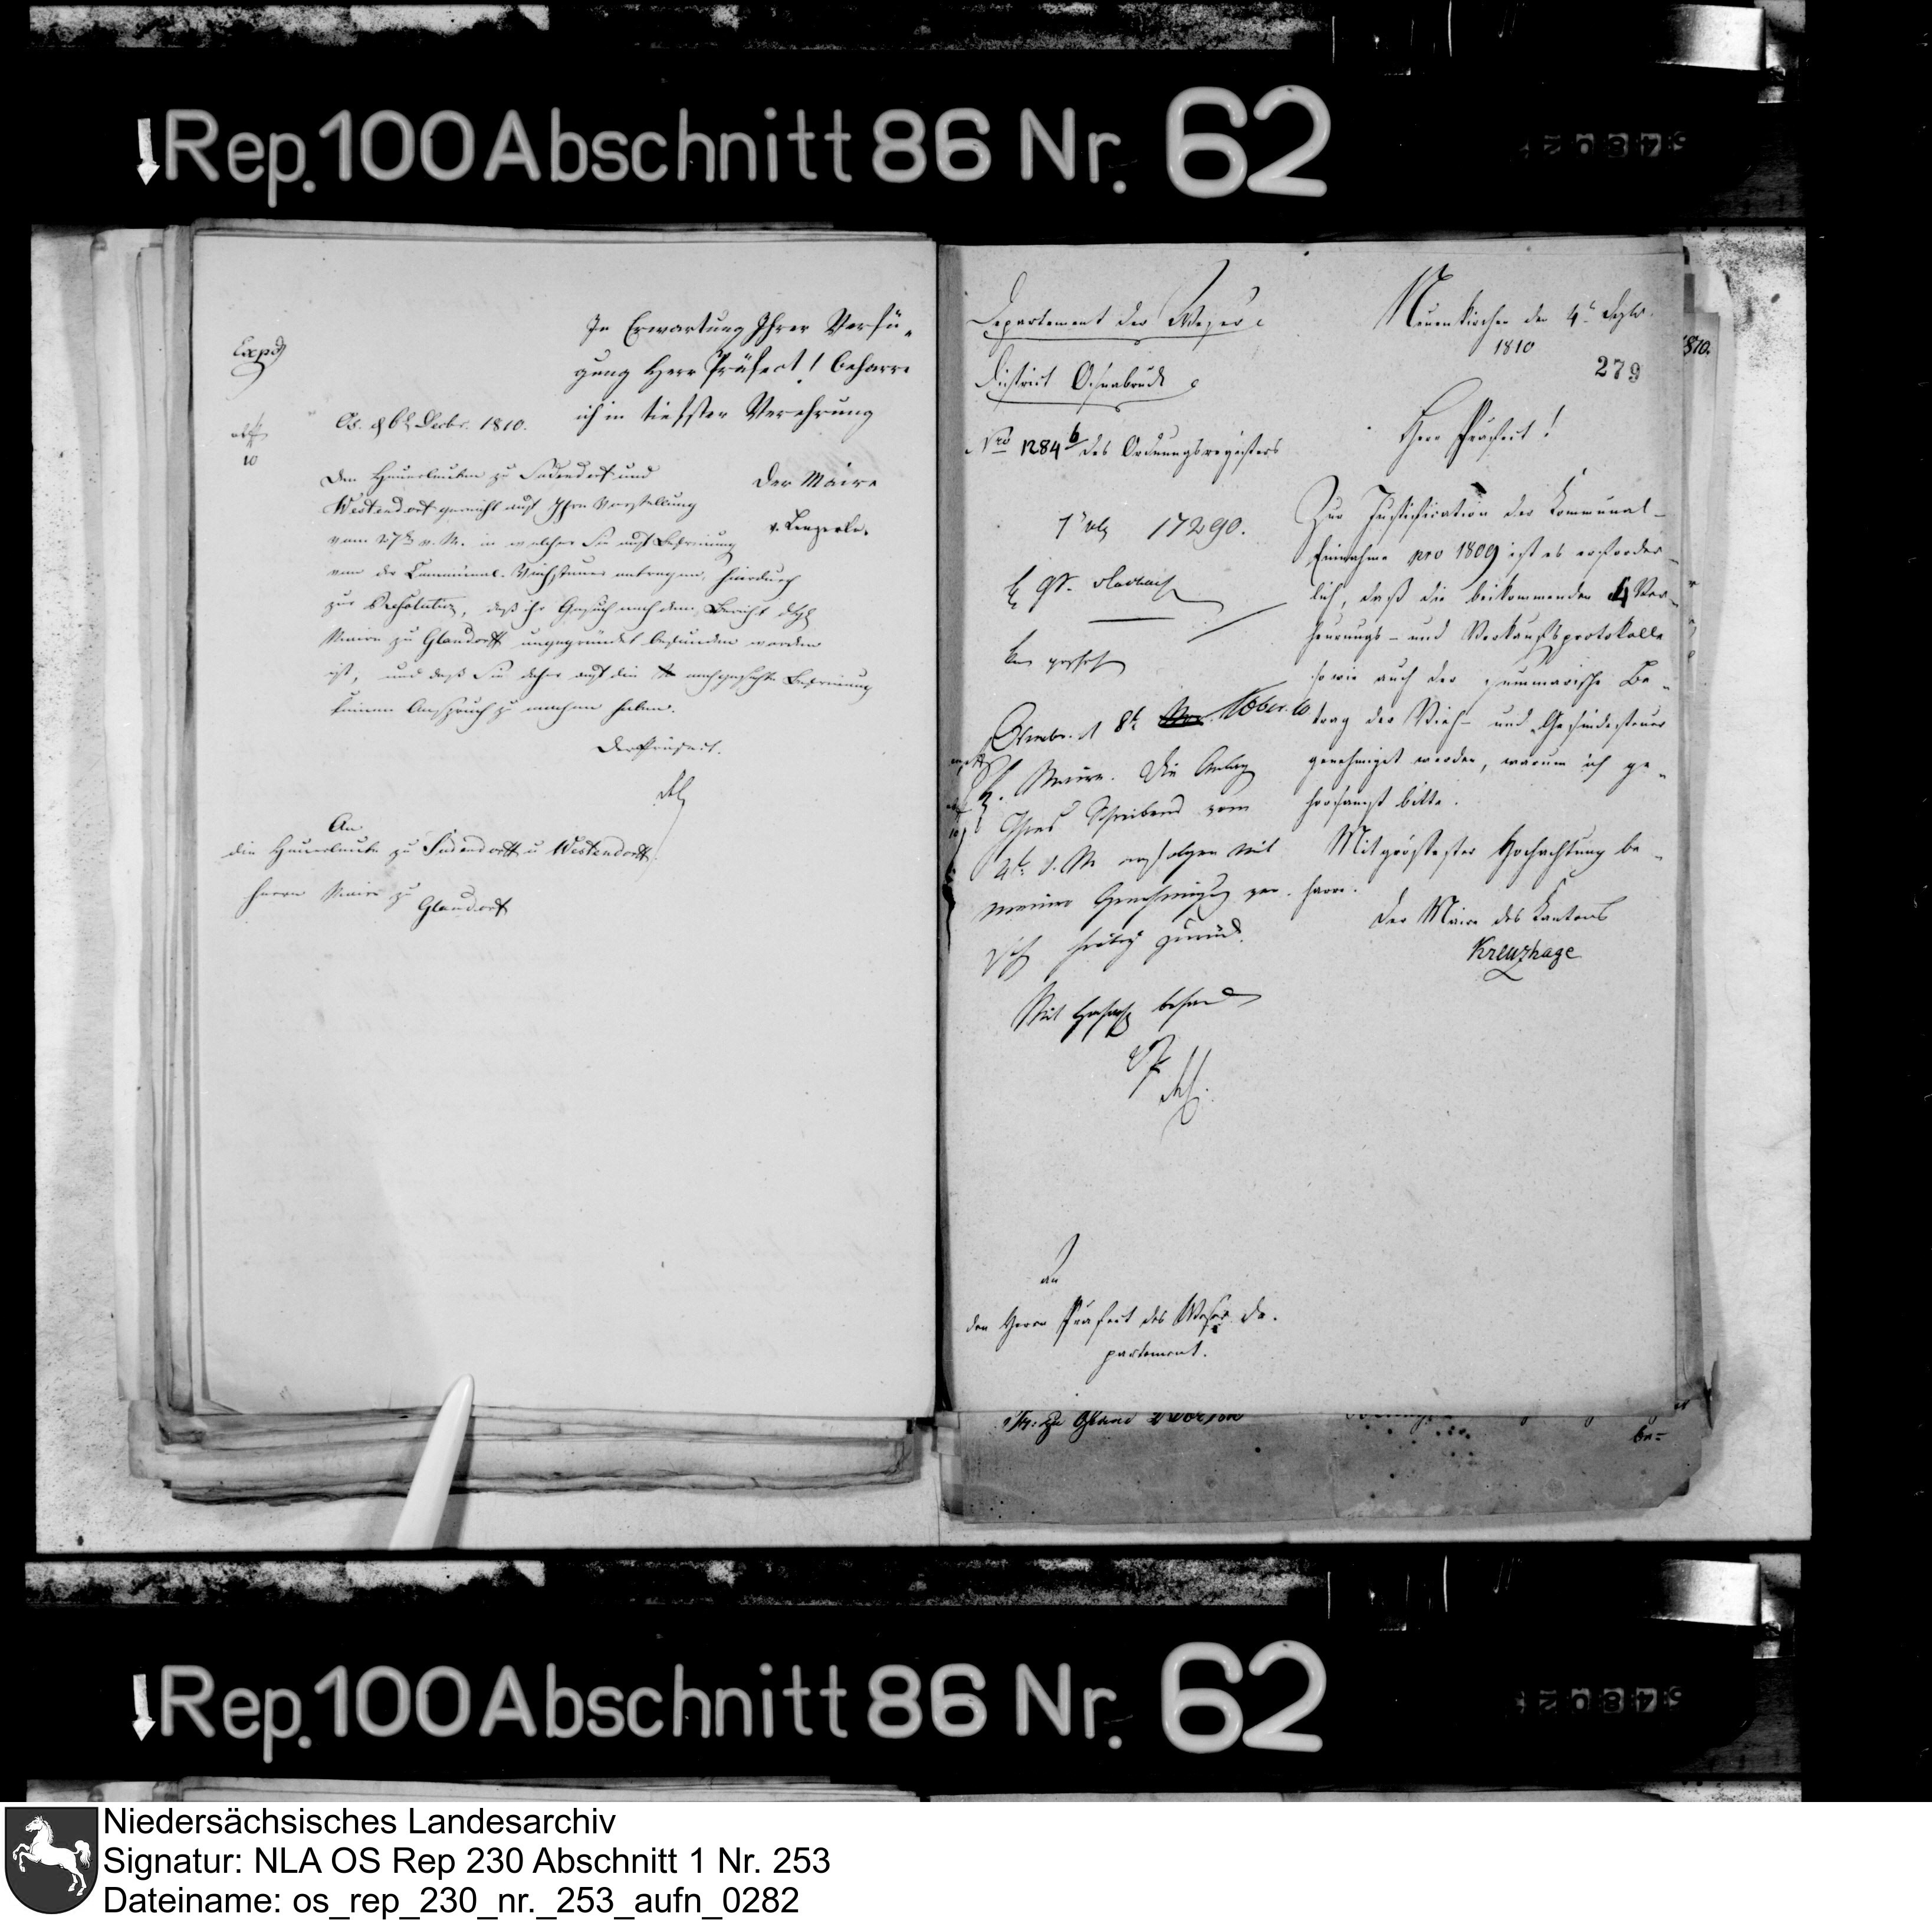 Rep. 100 Abschnitt 86 Nr. 62
In Erwartung Ihrer Verfü-
gung Herr Präfect! beharre
ich in tiefster Verehrung
Der Maire
v. Lengerke.
Exped
10
Os. d 6t Decbr. 1810.
Den Heuerleuten zu Sudendorf und
Westendorf gereicht auf Ihre Vorstellung
vom 27ten v. M. in welcher Sie auf Befreiung
von der Communal-Viehsteuer antragen, hierdurch
zur Resolution, daß ihr Gesuch nach dem Bericht des
Maire zu Glandorff ungegründet befunden worden
ist, und daß Sie daher auf die nachgesuchte Befreiung
keinen Anspruch zu machen haben.
Der Präfect.
An
die Heuerleute zu Sudendorff u Westendorff
Herrn Maire zu
Glandorf
Departement der Weser
District Osnabrück
Nro 1284 b des Ordnungsregisters
Neuenkirchen den 4t
1810
279
1810.
Herr Präfect!
17290.
Zur Justification der Kommunal-
Einnahme pro 1809 ist es erforder-
lich, daß die beikommenden 4 Ver-
heurungs- und Verkaufsprotokolle
so wie auch der summarische Be-
trag der Vieh- und Gesindesteuer
genehmiget werden, warum ich ge-
horsamst bitte.
Mit größester Hochachtung be-
harre.
Der Maire des Kantons
Kreuzhage
d 8t Xber. 10
H. Maire. Die Anlagen
Ihres Schreibens vom
4t d. M. erfolgen mit
meiner Genehmigung ver-
sehen zurück.
Mit
an
den Herrn Präfect des Weser De-
partement.
be-
Rep. 100 Abschnitt 86 Nr. 62
Niedersächsisches Landesarchiv
Signatur: NLA OS Rep 230 Abschnitt 1 Nr. 253
Dateiname: os_rep_230_nr._253_aufn_0282